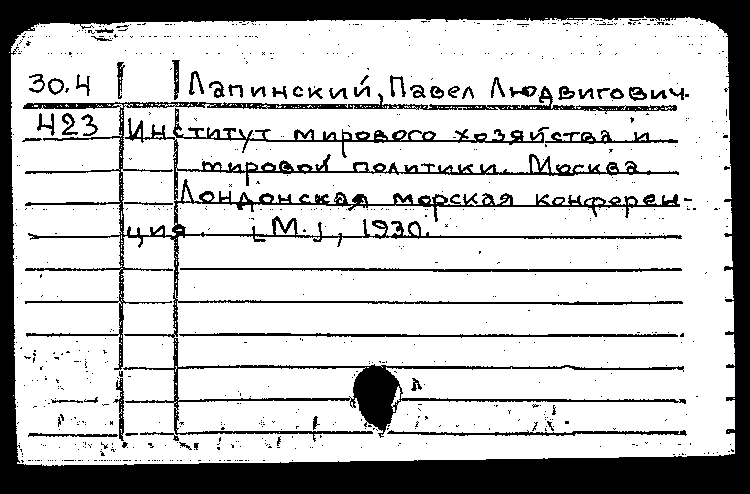 30.4 Лапинский, Павел Людвигович.
423 Институт мирового хозяйства и
мировой политики. Москва.
Лондонская морская конферен-
ция. [М.], 1930.